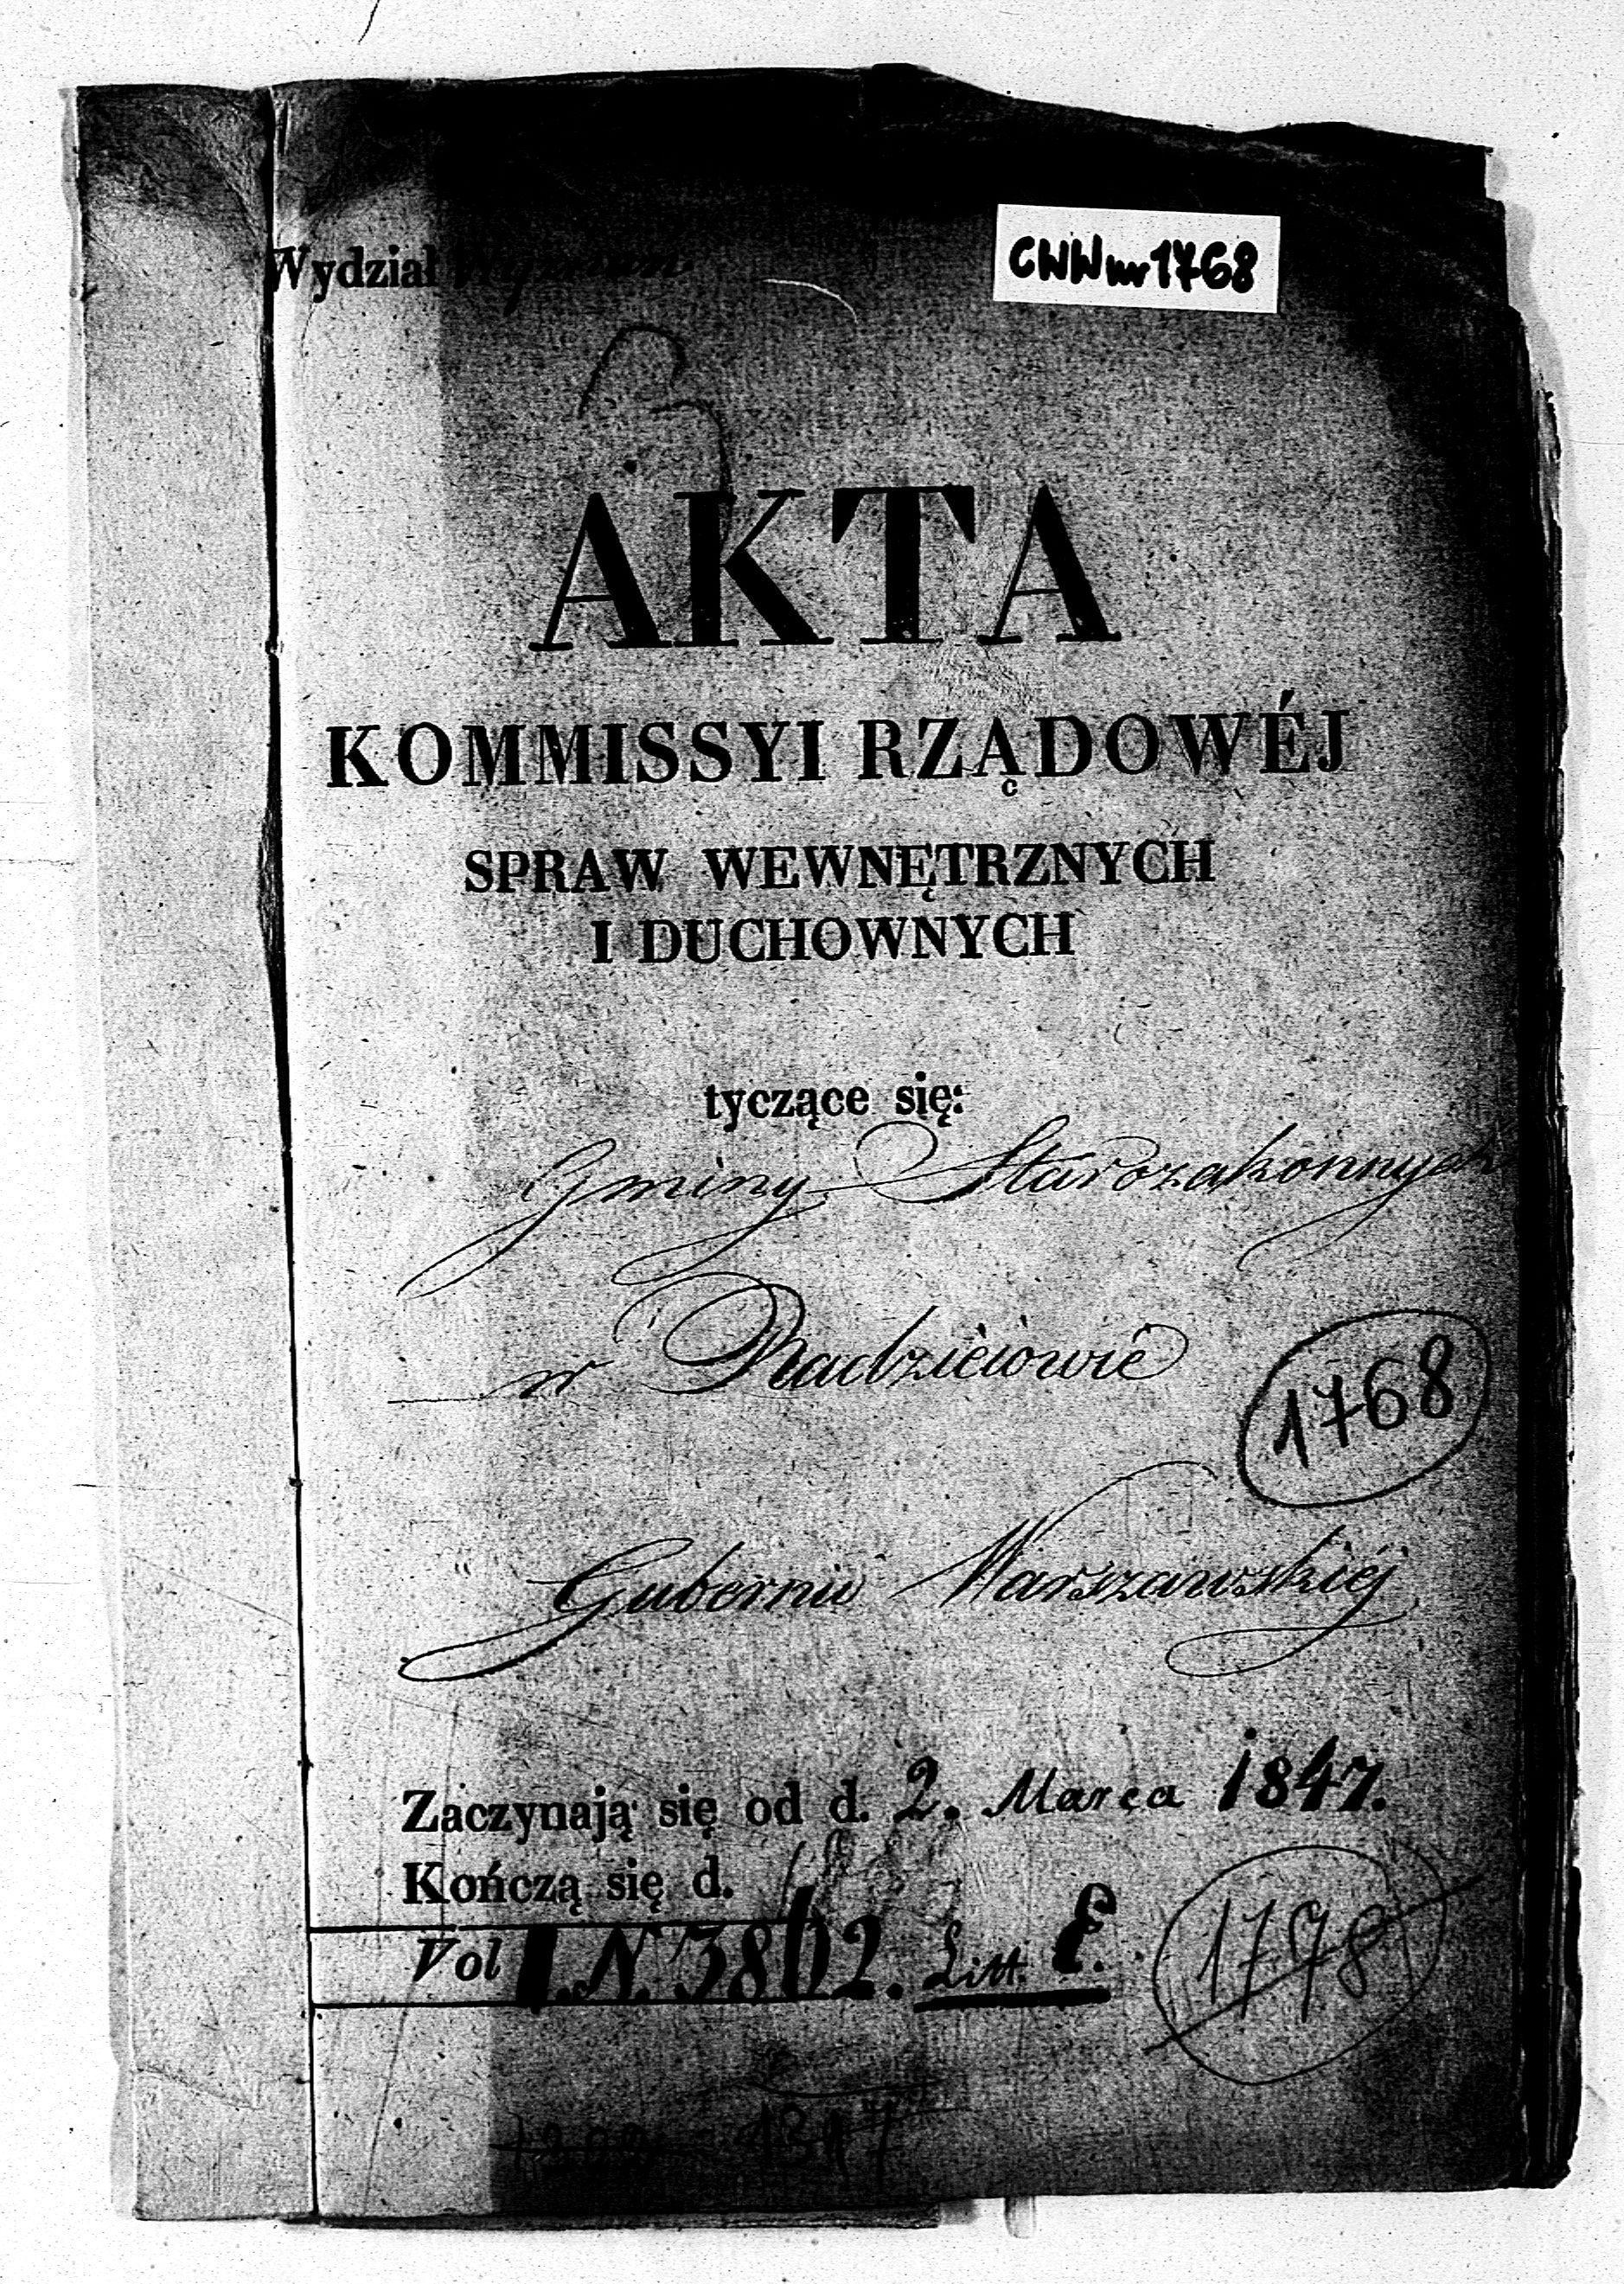 Wydział Wyznań.
CWW nr 1768
AKTA
KOMMISSYI RZĄDOWÉJ
SPRAW WEWNĘTRZNYCH
I DUCHOWNYCH
tyczące się:
Gminy Starozakonnych
w Radziejowie
1768
Gubernii Warszawskiéj
Zaczynają się od d. 2. Marca 1847.
Kończą się d.
Vol I. N. 3802. Litt. E.
1778